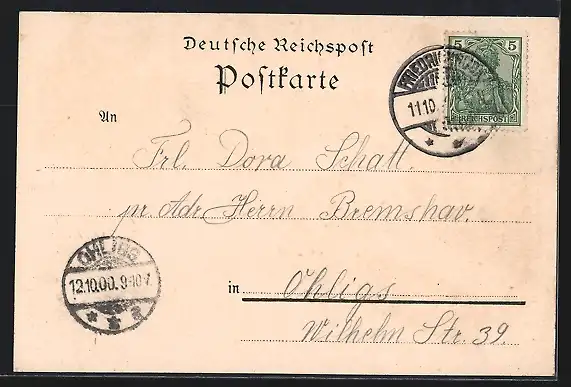 Deutsche Reichspost
Postkarte
An
Frl. Dora Schall.
pr. Adr. Herrn Bremshav.
in Ohligs
Wilhelm Str. 39.
5 5
REICHSPOST
11.10
OHLIGS
12.10.00. 9-10 V.
* * a